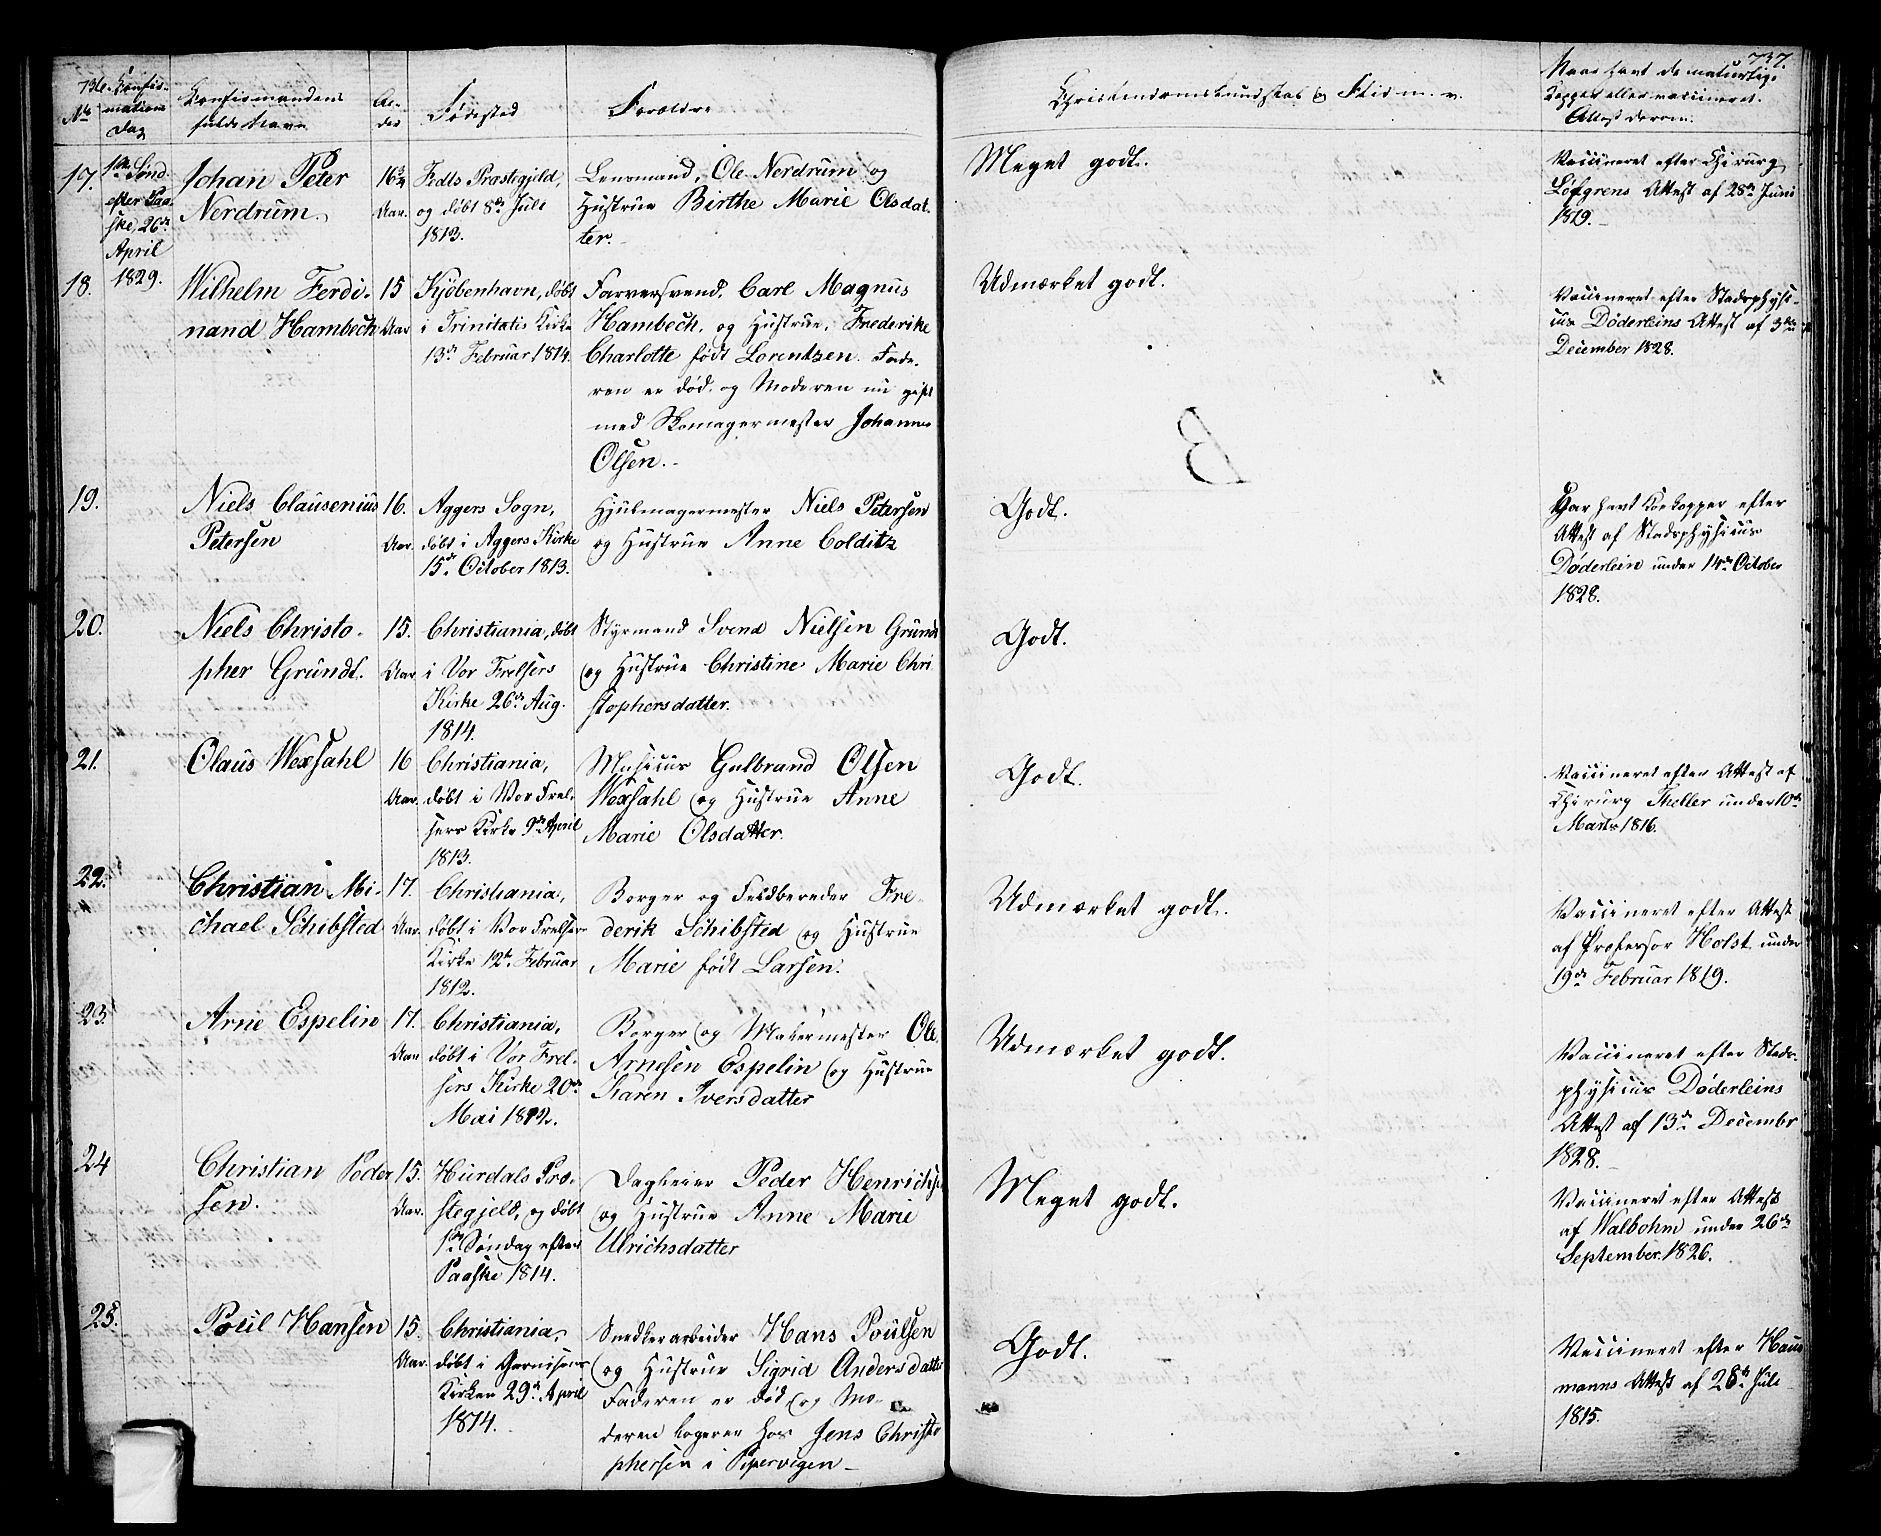 736.
No
Confir-
mations
Dag
Confirmandens
fulde Navn
Al-
der
Fødested
Forældre
17.
1ste Sønd.
efter Paa-
ske, 26de
April
1829.
Johan Peter
Nerdrum.
16¾
Aar.
Fedts Præstegjeld,
og døbt 8de Juli
1813.
Lensmand, Ole Nerdrum og
Hustrue Birthe Marie Olsdat-
ter.
18.
Wilhelm Ferdi-
nand Hambech
15
Aar
Kjöbenhavn, døbt
i Trinitatis Kirke
13de Februar 1814.
Farversvend, Carl Magnus
Hambech, og Hustrue, Frederike
Charlotte født Lorentzen. Fade-
ren er død, og Moderen nu gift
med Skomagermester Johannes
Olsen.
19.
Niels Clausenius
Petersen
16.
Aar.
Aggers Sogn,
døbt i Aggers Kirke
15de October 1813.
Hjulmagermester Niels Petersen
og Hustrue Anne Colditz
20.
Niels Christo-
pher Gründt.
15.
Aar.
Christiania, døbt
i Vor Frelsers
Kirke 26de Aug.
1814.
Styrmand Svend Nielsen Gründt
og Hustrue Christine Marie Chri-
stophersdatter.
21.
Olaus Wexsahl
16
Aar.
Christiania,
døbt i Vor Frel-
sers Kirke 9de April
1813.
Musicus Gulbrand Olsen
Wexsahl og Hustrue Anne
Marie Olsdatter.
22.
Christian Mi-
chael Schibsted
17.
Aar.
Christiania,
døbt i Vor Frelsers
Kirke 12te Februar
1812.
Borger og Feldbereder Fre-
derik Schibsted og Hustrue
Marie født Larsen.
23.
Arne Espelin
17.
Aar
Christiania,
døbt i Vor Frel-
sers Kirke 20de
Mai 1812.
Borger og Malermester Ole
Arnesen Espelin og Hustrue
Karen Iversdatter
24
Christian Peder-
sen.
15.
Aar.
Hurdals Præ-
stegjeld, og døbt
1ste Søndag efter
Paaske 1814.
Dagleier Peder Henrichsen
og Hustrue Anne Marie
Ulrichsdatter
25.
Poul Hansen
15.
Aar.
Christiania,
døbt i Garnisons
Kirken 29de April
1814.
Snedkerarbeider Hans Poulsen
og Hustrue Sigrid Andersdatter
Faderen er død og Mo-
deren logerer hos Jens Christo-
phersen i Pipervigen
737.
Christendomskundskab og Flid m. v.
Naar havt de naturlige
Kopper eller vaccineret.
Attest derom.
Meget godt.
Vaccineret efter Chirurg
Løfgrens Attest af 28de Juni
1819.
Udmærket godt.
Vaccineret efter Stadsphysi-
cus Døderleins Attest af 3die
December 1828.
B
Godt.
Har havt Koekopper efter
Attest af Stadsphysicus
Døderlein under 14de October
1828.
Godt.
Godt.
Vaccineret efter Attest af
Chirurg Theller under 10de
Marts 1816.
Udmærket godt.
Vaccineret efter Attest
af Professor Holst under
19de Februar 1819.
Udmærket godt.
Vaccineret efter Stads-
physicus Døderleins
Attest af 13de December
1828.
Meget godt.
Vaccineret efter Attest
af Walbohm under 26de
September 1826.
Godt.
Vaccineret efter Haus-
manns Attest af 28de Juli
1815.